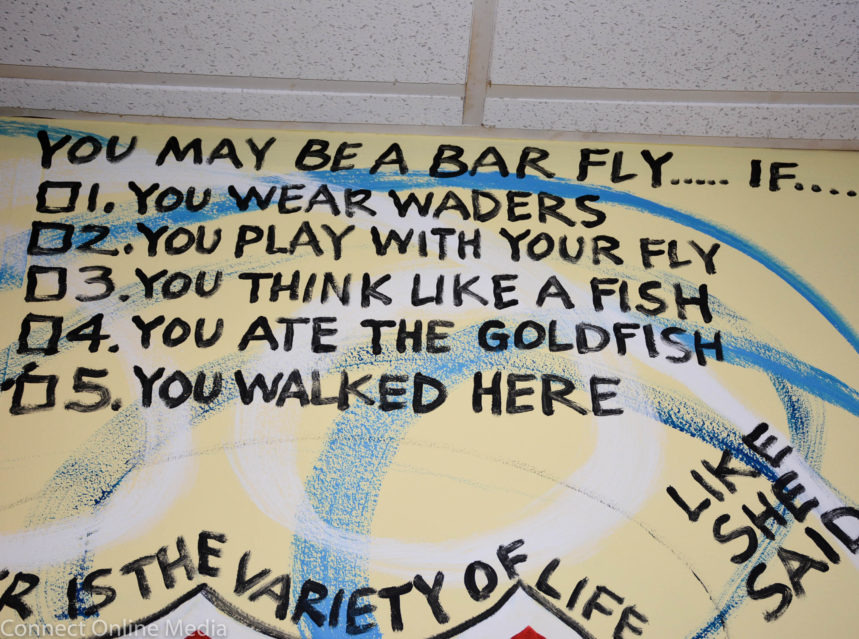 YOU MAY BE A BAR FLY..... IF....
1. YOU WEAR WADERS
2. YOU PLAY WITH YOUR FLY
3. YOU THINK LIKE A FISH
4. YOU ATE THE GOLDFISH
5. YOU WALKED HERE
LIKE
SHE
SAID
IS THE VARIETY OF LIFE
Connect Online Media